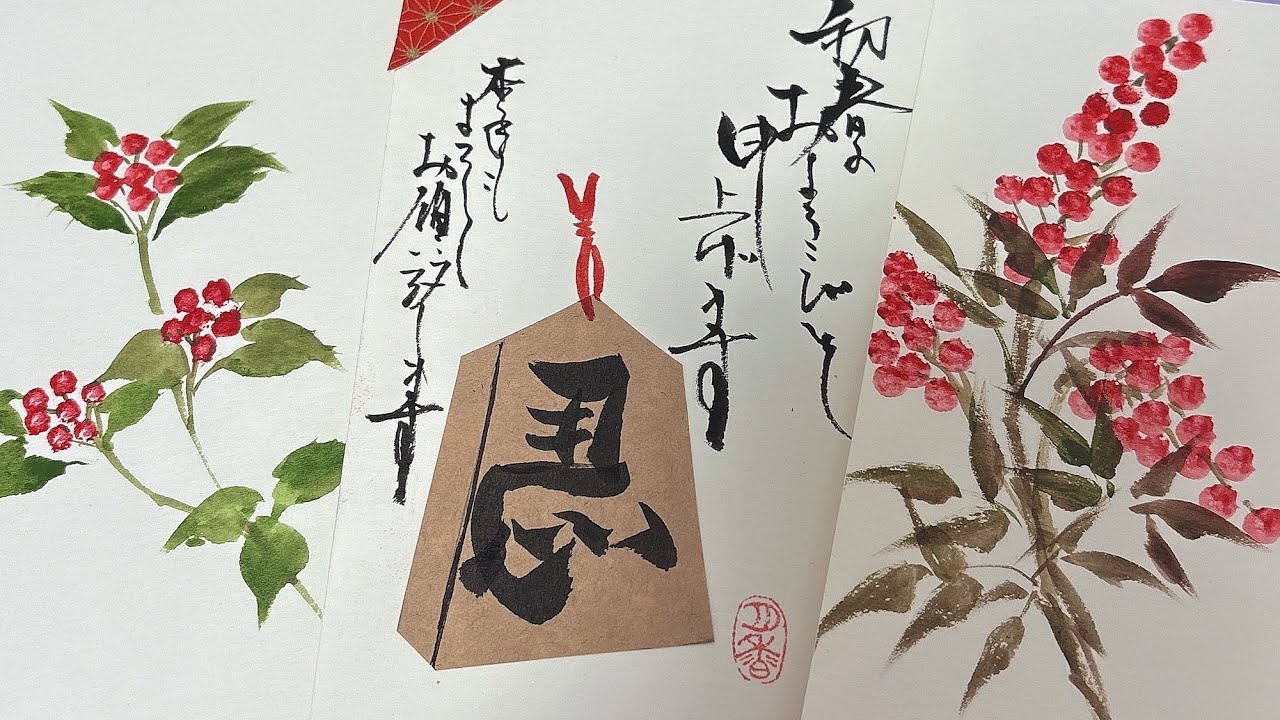 初春の
およろこびを
申上げます
本年も
よろしく
お願い致します
馬